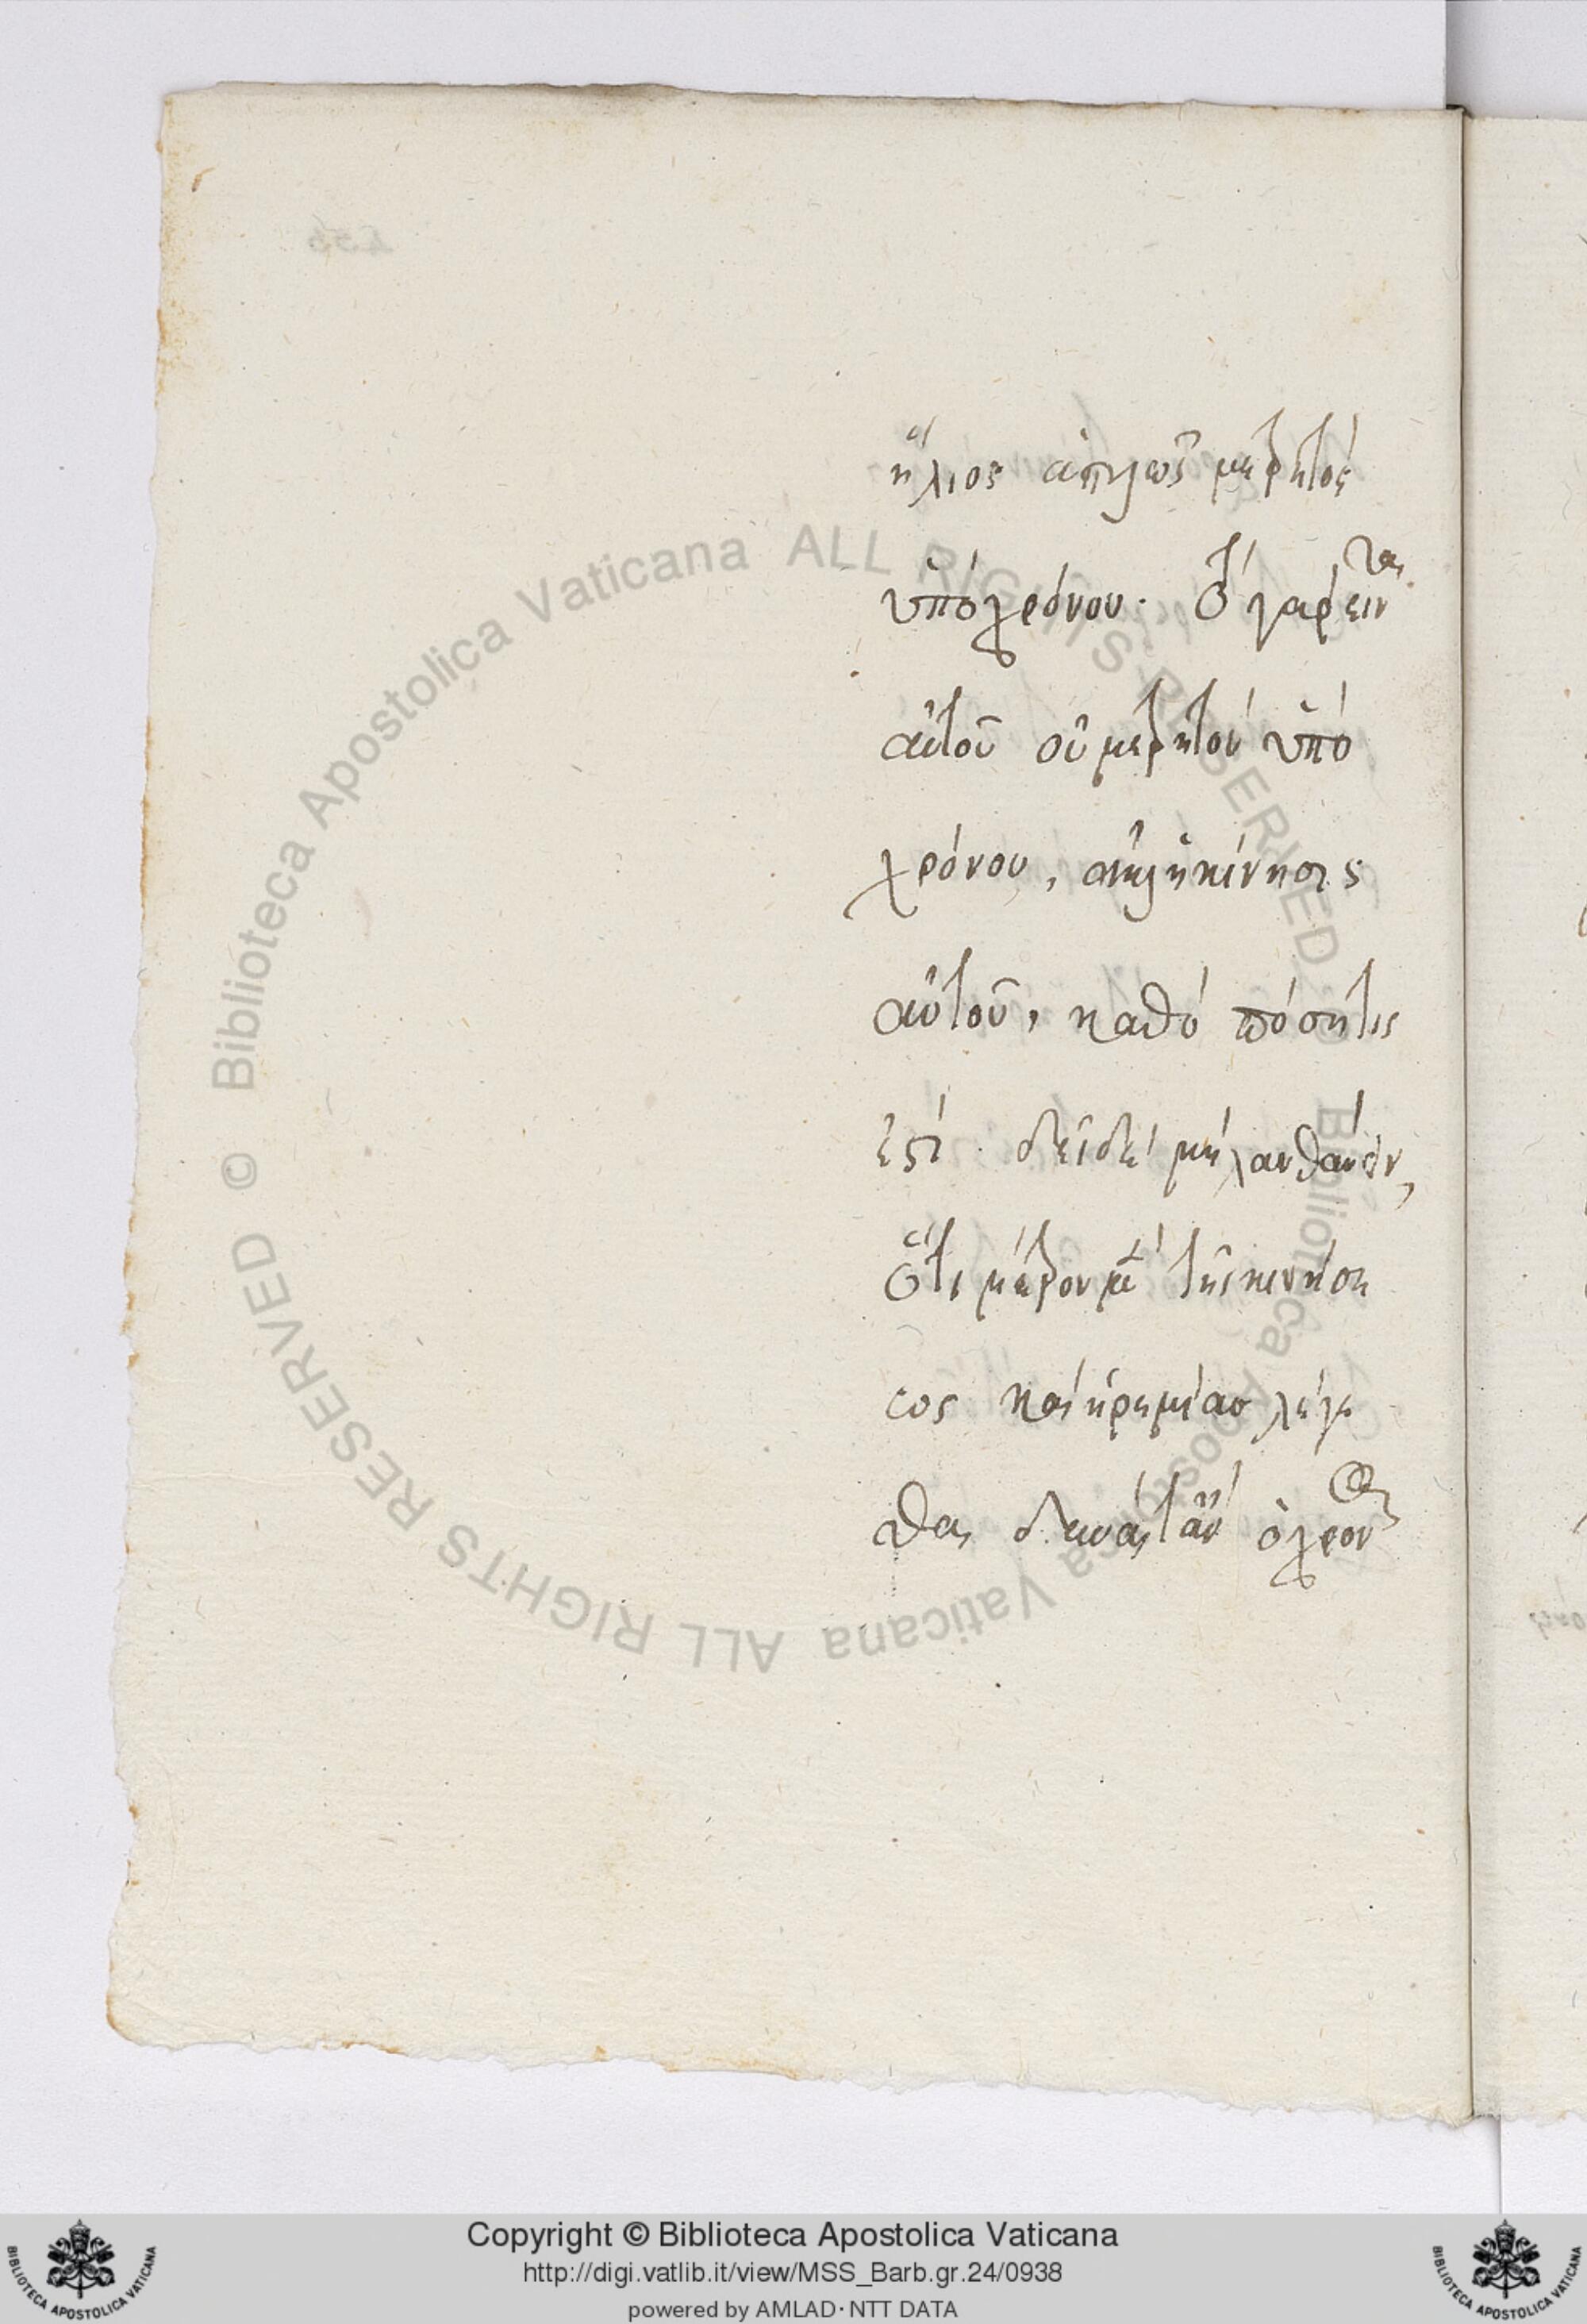 ἥλιος ἁπλῶς μετρητὸς
ὑπὸ χρόνου. Τὸ γὰρ εἶναι
αὐτοῦ οὐ μετρητὸν ὑπὸ
χρόνου, ἀλλ' ἡ κίνησις
αὐτοῦ, καθὸ πόση τις
ἐστί. δεῖ δὲ μὴ λανθάνειν,
ὅτι μέτρον μὲν τῆς κινήσε
ως καὶ ἠρεμίας λέγε
σθαι δύναιτ' ἂν ὁ χρόνος
Biblioteca Apostolica Vaticana ALL RIGHTS RESERVED ©
Biblioteca Apostolica Vaticana ALL RIGHTS RESERVED ©
Copyright © Biblioteca Apostolica Vaticana
http://digi.vatlib.it/view/MSS_Barb.gr.24/0938
powered by AMLAD · NTT DATA
BIBLIOTECA APOSTOLICA VATICANA
BIBLIOTECA APOSTOLICA VATICANA